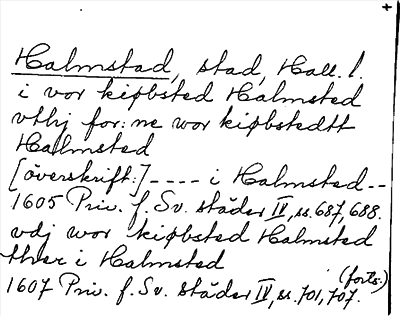 +
Halmstad, stad, Hall. l.
i vor kiøbsted Halmsted
vthj for:ne wor kiøbstedtt
Halmsted
[överskrift:] ---- i Halmsted--
1605 Priv. f. Sv. städer IV, ss. 687, 688.
vdj wor kiøbsted Halmsted
ther i Halmsted
(forts.)
1607 Priv. f. Sv. städer IV, ss. 701, 707.